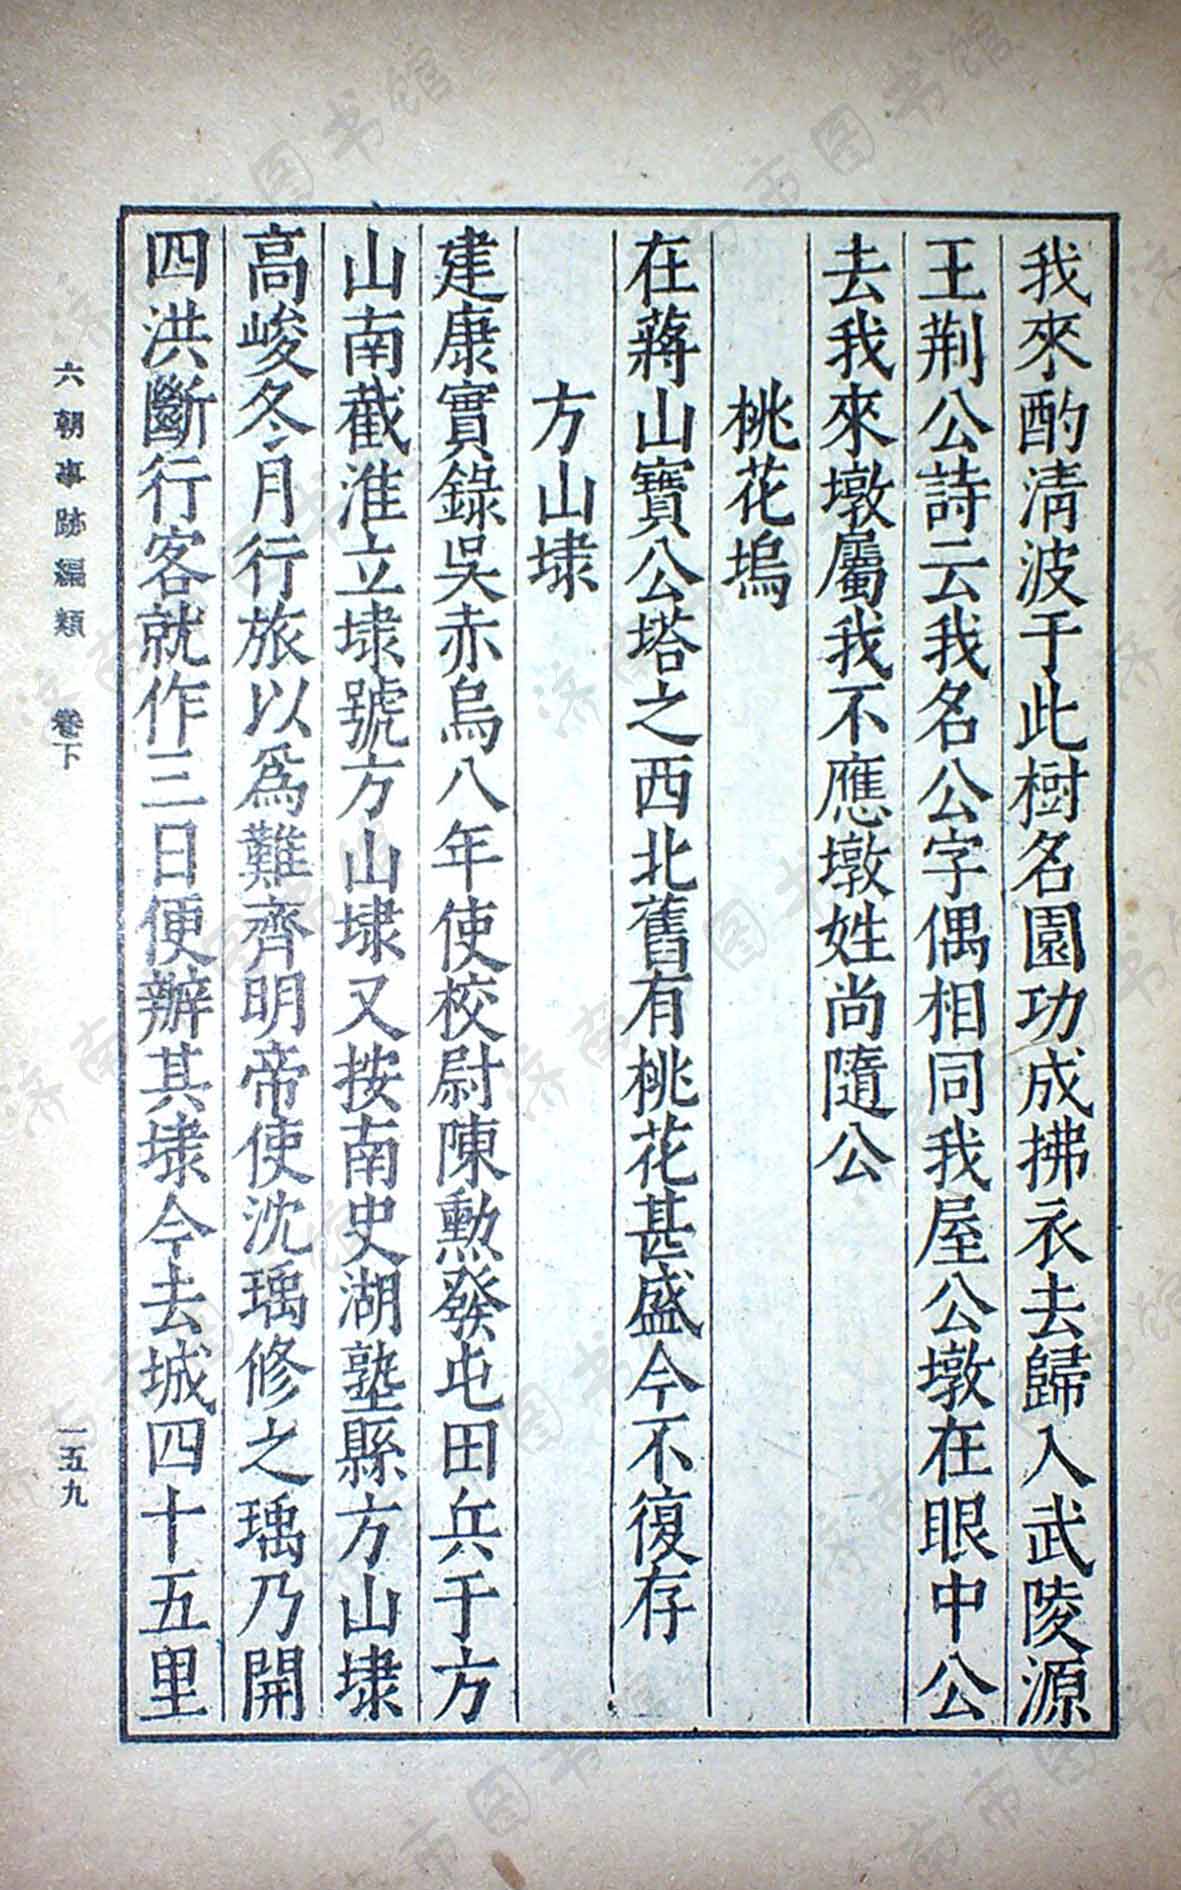 我來酌清波于此樹名園功成拂衣去歸入武陵源
王荆公詩云我名公字偶相同我屋公墩在眼中公
去我來墩屬我不應墩姓尚隨公
桃花塢
在蔣山寶公塔之西北舊有桃花甚盛今不復存
方山埭
建康實錄吳赤烏八年使校尉陳勳發屯田兵于方
山南截淮立埭號方山埭又按南史湖塾縣方山埭
高峻冬月行旅以爲難齊明帝使沈瑀修之瑀乃開
四洪斷行客就作三日便辦其埭今去城四十五里
六朝事跡編類 卷下
一五九
济南市图书馆